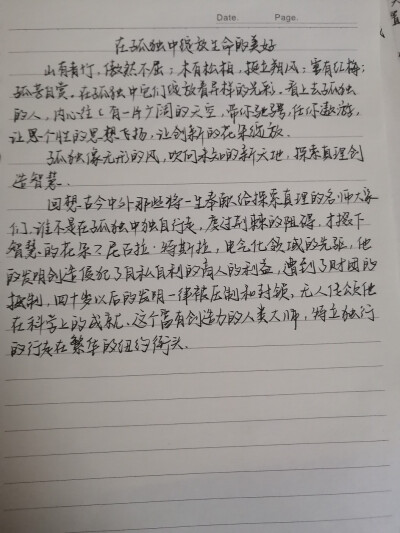 Date.    Page.
在孤独中绽放生命的美好
山有青竹,傲然不屈;木有松柏,挺立朔风;寒有红梅;
孤芳自赏。在孤独中它们绽放着异样的光彩,看上去孤独
的人,内心往往有一片广阔的天空,带你驰骋,任你遨游,
让思个性的思想飞扬,让创新的花朵绽放。
孤独像无形的风,吹向未知的新天地,探索真理创
造智慧。
回想古今中外那些将一生奉献给探索真理的名师大家
们,谁不是在孤独中独自行走,度过荆棘的阻碍,才摄下
智慧的花朵?尼古拉·特斯拉,电气化领域的先驱,他
的发明创造侵犯了自私自利的商人的利益,遭到了财团的
抵制,四十岁以后的发明一律被压制和封锁,无人任颂他
在科学上的成就,这个富有创造力的人类大师,特立独行
的行走在繁华的纽约街头。